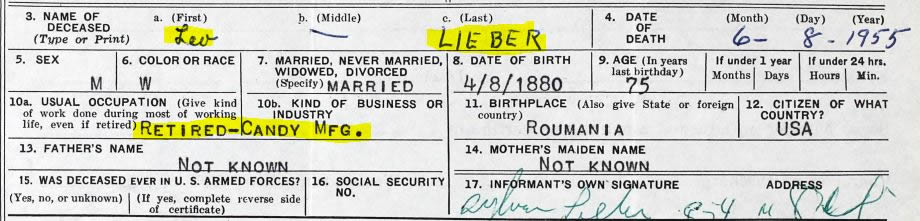 3. NAME OF DECEASED (Type or Print) a. (First) b. (Middle) c. (Last) 4. DATE OF DEATH (Month) (Day) (Year)
Leo — LIEBER 6- 8- 1955
5. SEX 6. COLOR OR RACE 7. MARRIED, NEVER MARRIED, WIDOWED, DIVORCED (Specify) 8. DATE OF BIRTH 9. AGE (In years last birthday) If under 1 year Months Days If under 24 hrs. Hours Min.
M W MARRIED 4/8/1880 75
10a. USUAL OCCUPATION (Give kind of work done during most of working life, even if retired) 10b. KIND OF BUSINESS OR INDUSTRY 11. BIRTHPLACE (Also give State or foreign country) 12. CITIZEN OF WHAT COUNTRY?
RETIRED-CANDY MFG. ROUMANIA USA
13. FATHER'S NAME 14. MOTHER'S MAIDEN NAME
NOT KNOWN NOT KNOWN
15. WAS DECEASED EVER IN U. S. ARMED FORCES? 16. SOCIAL SECURITY NO. 17. INFORMANT'S OWN SIGNATURE ADDRESS
(Yes, no, or unknown) (If yes, complete reverse side of certificate) Lieber